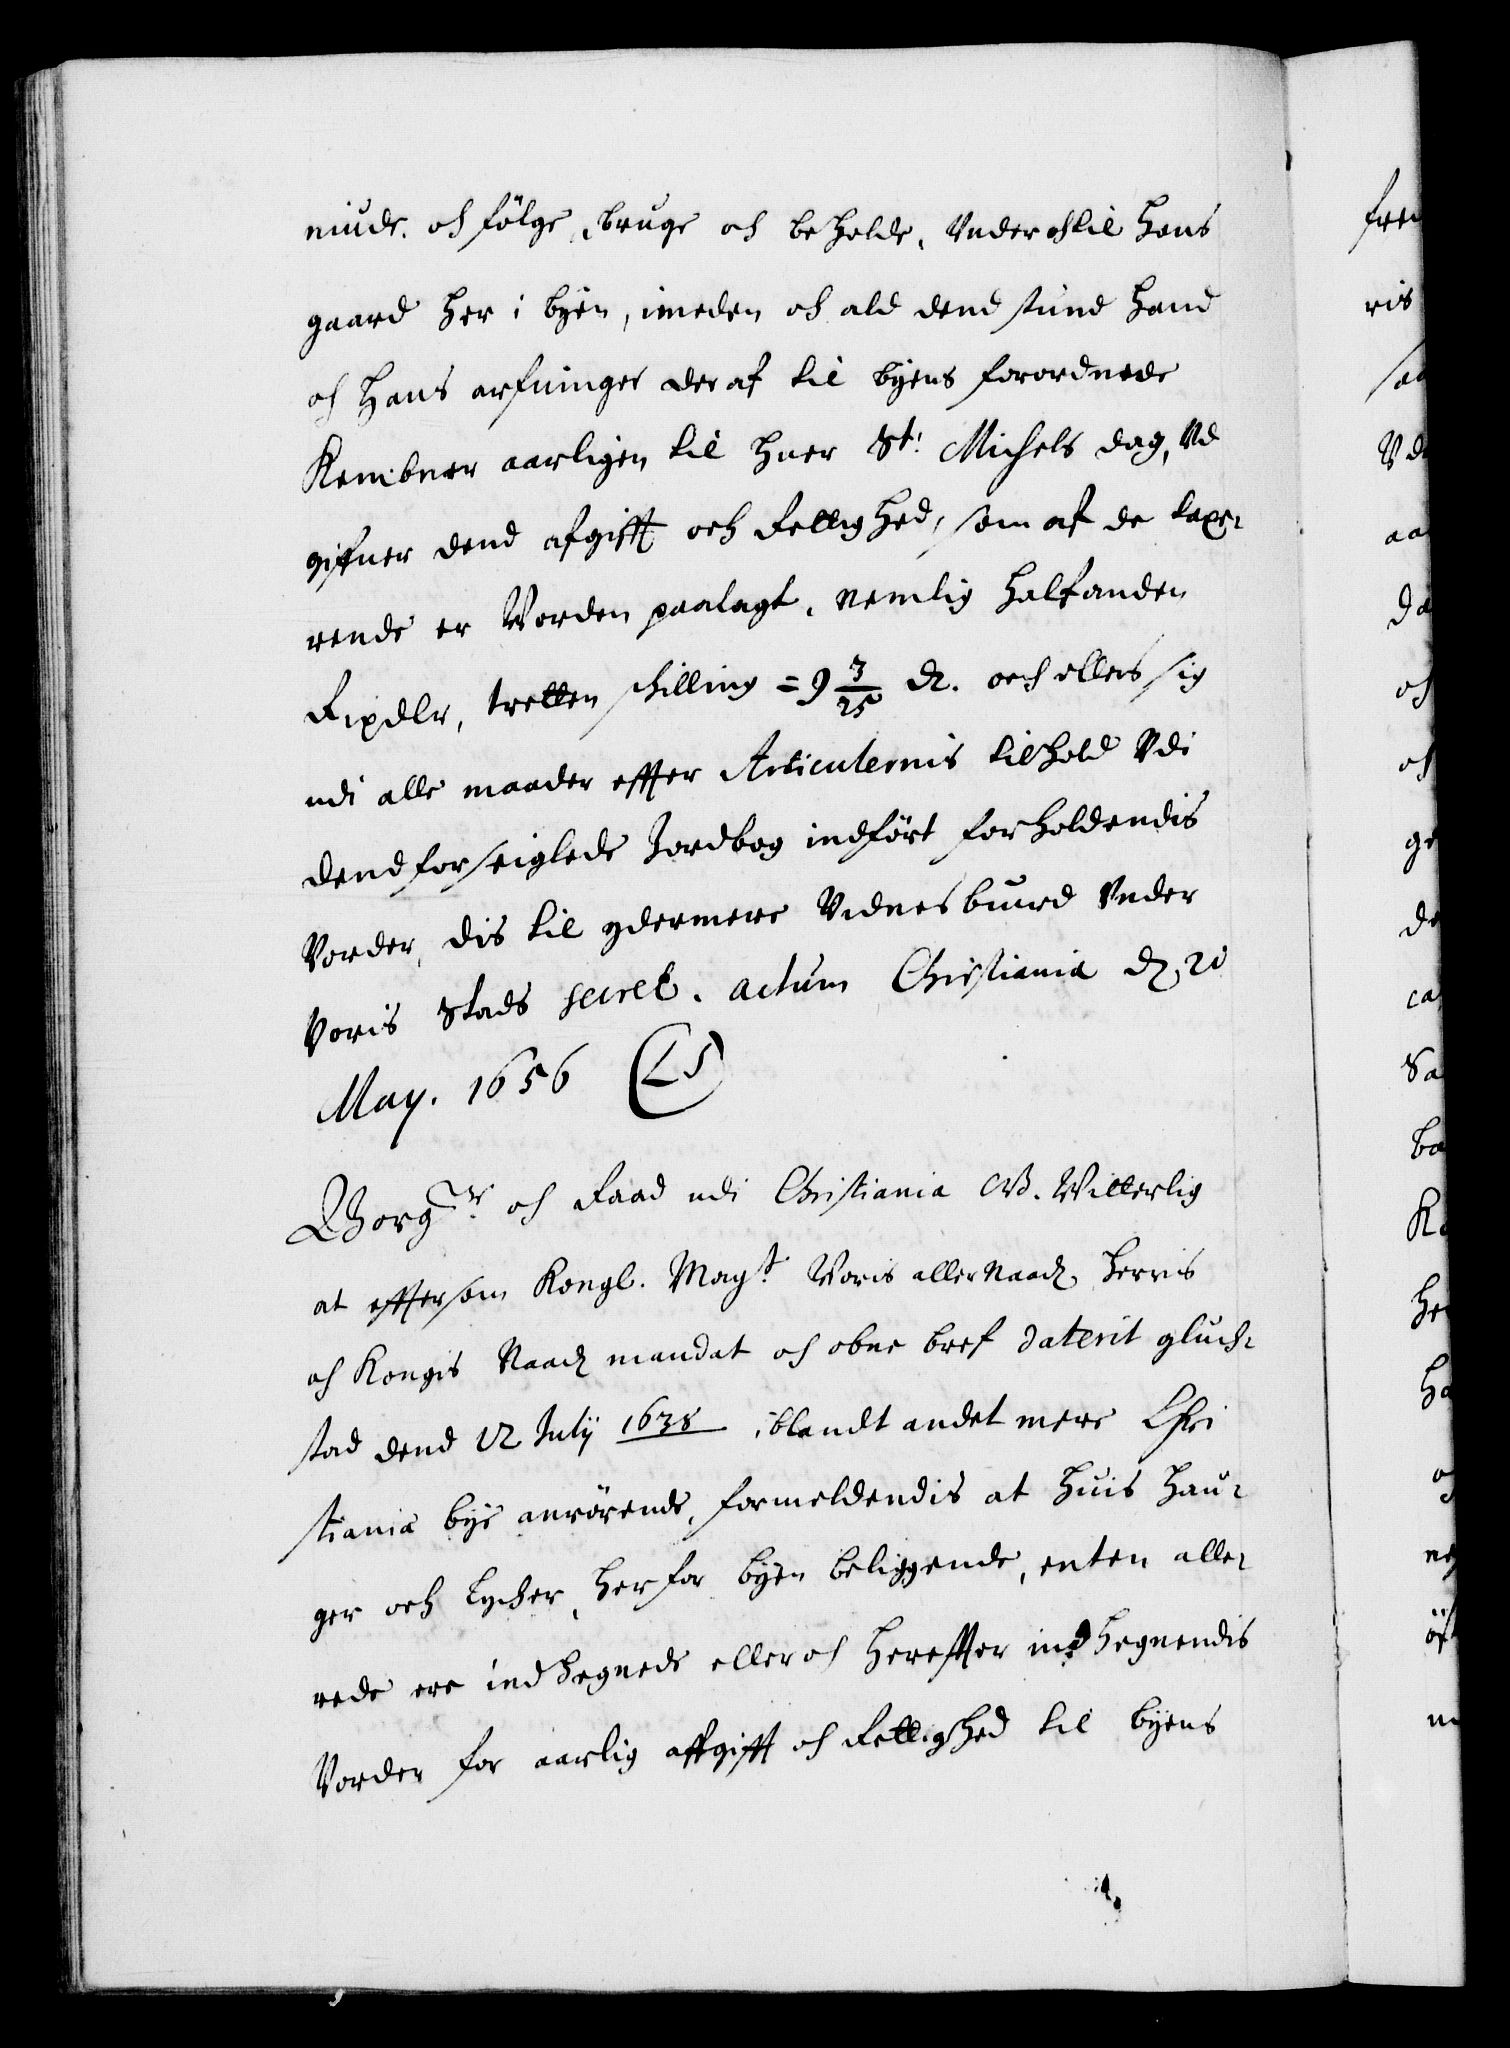 niude. och fölge, bruge och beholde, Vnder och til hans
gaard her i byen, imeden och ald dend stund hand
och hans arfuinger der af til byens forordnede
Kemibner aarligen til huer St: Michels dag, Vd
gifuer dend afgifft och Rettighed, som af de taxe¬
rende er Worden paalagt, nemlig halfanden
Rixdlr, tretten schilling = 9 3/25 d. och ellers sig
udi alle maader effter Articulernis tilhold Vdi
dend forseiglede Jordbog indfört forholdendis
Vorder, dis til ydermere Vidnesbuurd Vnder
Voris Stads secret. actum Christiania d. 21
May. 1656 (LS)
Borgr. och Raad udi Christiania G. Witterlig
at effter som Kongl. Mayt. Woris aller Naad. herris
och Kongis Naad mandat och obne bref daterit gluch¬
stad dend 12 Julij 1638 iblandt andet mere Chri
stiania bye anrörende, formeldendis at huis hau¬
ger och Lycher, her for byen beliggende, enten alle¬
rede ere indhegnede eller och hereffter indhegnendis
Vorder for aarlig affgifft och Rettighed til byens